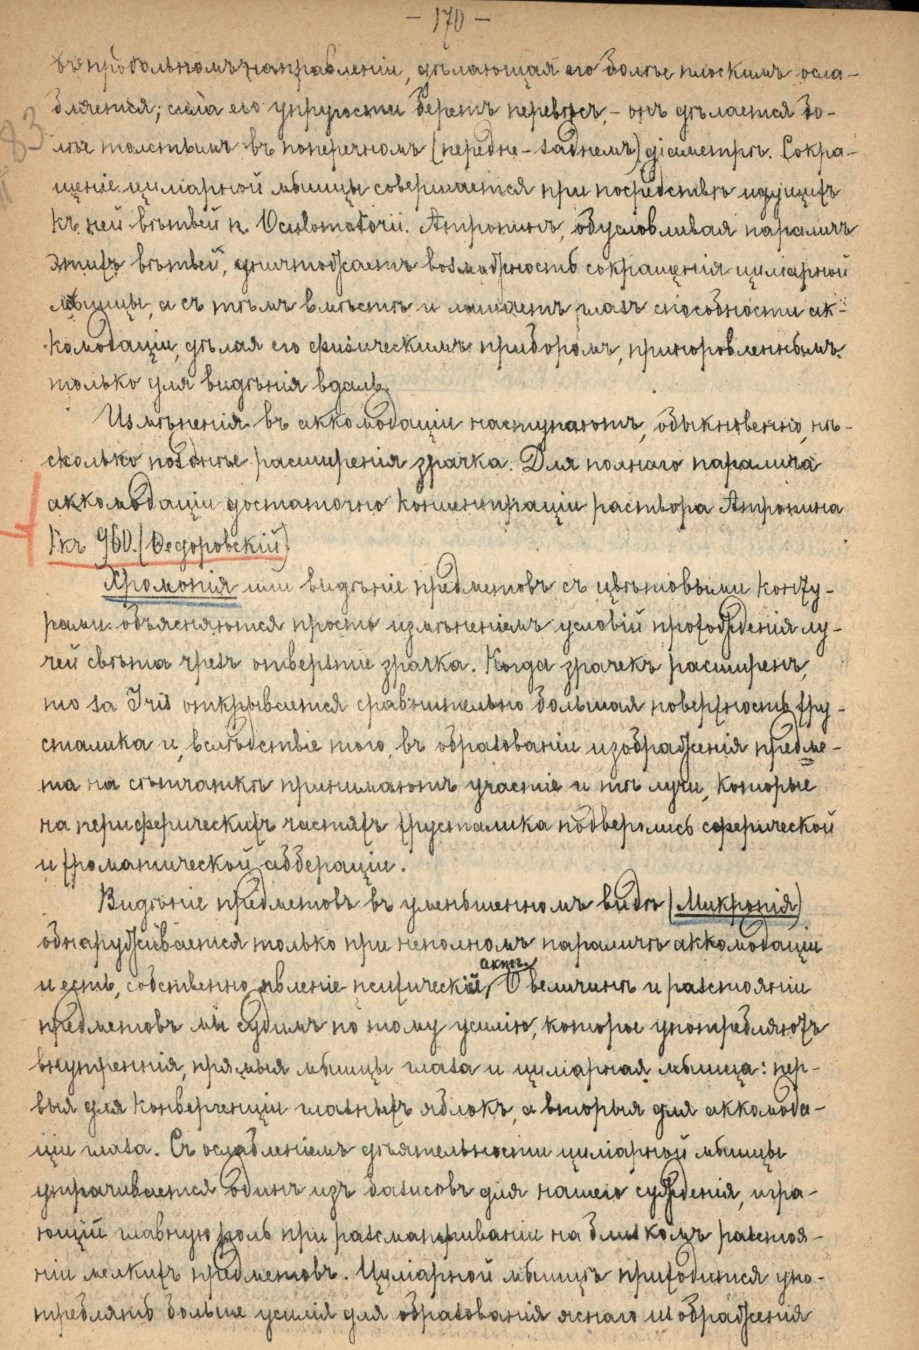 - 170 -
въ продольномъ направленіи, дѣлающая его болѣе плоскимъ осла-
бляется; сила его упругости беретъ перевѣсъ, - онъ дѣлается бо-
лѣе толстымъ въ поперечномъ (передне-заднемъ) діаметрѣ. Сокра-
щеніе циліарной мышцы совершается при посредствѣ идущихъ
къ ней вѣтвей n. Oculomotorii. Атропинъ, обусловливая параличъ
этихъ вѣтвей, уничтожаетъ возможность сокращенія циліарной
мышцы, а съ тѣмъ вмѣстѣ и лишаетъ глазъ способности ак-
комодаціи, дѣлая его физическимъ приборомъ, приноровленнымъ
только для видѣнія вдаль.
Измѣненія въ аккомодаціи наступаютъ, обыкновенно, нѣ-
сколько позднѣе расширенія зрачка. Для полнаго паралича
аккомодаціи достаточно концентраціи раствора Атропина
1 къ 960. (Ѳедоровскій)
83
Хромопія или видѣніе предметовъ съ цвѣтовыми конту-
рами объясняются просто измѣненіемъ условій прохожденія лу-
чей свѣта чрезъ отверзтіе зрачка. Когда зрачекъ расширенъ,
то за Iris открывается сравнительно большая поверхность хру-
сталика и, вслѣдствіе того, въ образованіи изображенія предме-
та на сѣтчаткѣ принимаютъ участіе и тѣ лучи, которые
на периферическихъ частяхъ хрусталика подверглись сферической
и хроматической абберраціи.
Видѣніе предметовъ въ уменьшенномъ видѣ (Микропія)
обнаруживается только при неполномъ параличѣ аккомодаціи
и есть, собственно, явленіе психическій актъ. О величинѣ и разстояніи
предметовъ мы судимъ по тому усилію, которое употребляютъ
внутреннія, прямыя мышцы глаза и циліарная мышца: пер-
выя для конвергенціи глазныхъ яблокъ, а вторыя для аккомода-
ціи глаза. Съ ослабленіемъ дѣятельности циліарной мышцы
утрачивается одинъ изъ базисовъ для нашего сужденія, игра-
ющій главную роль при разсматриваніи на близкомъ разстоя-
ніи мелкихъ предметовъ. Циліарной мышцѣ приходится упо-
треблять больше усилія для образованія яснаго изображенія